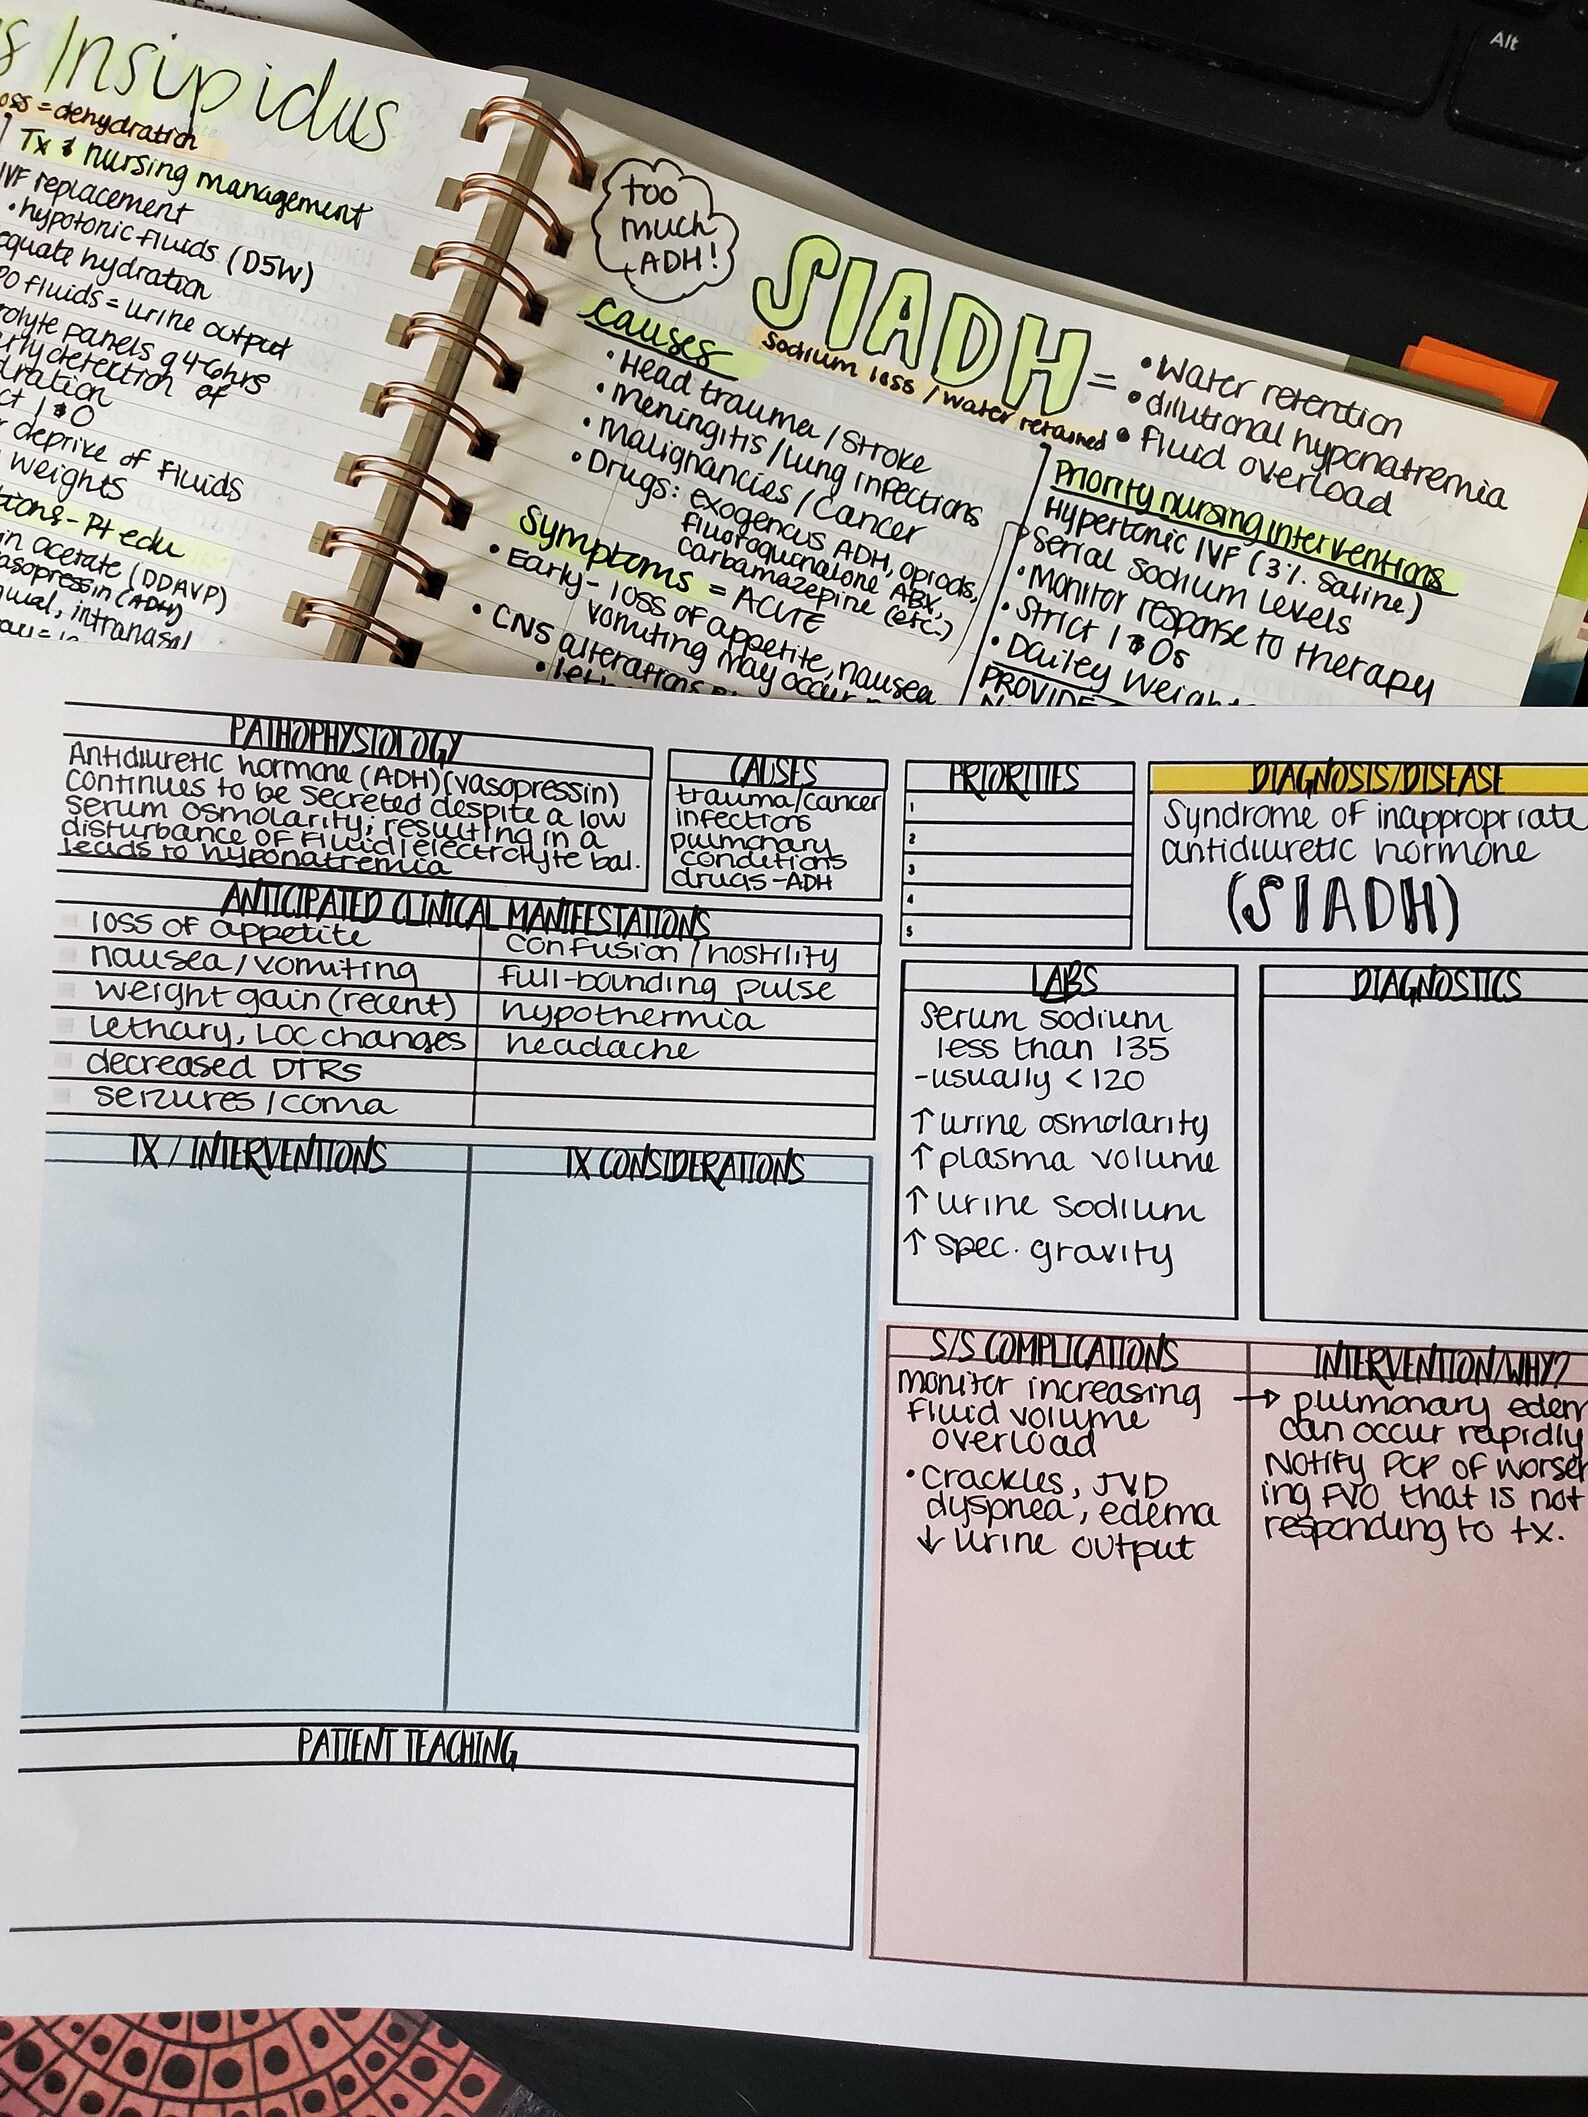 Insipidus
= dehydration
Tx & nursing management
IVF replacement
• hypotonic fluids (D5W)
hydration
fluids = urine output
panels q 4-6hrs
detection of
I & O
deprive of fluids
weights
- Pt edu
acetate (DDAVP)
(ADH)
intranasal
Alt
too
much
ADH!
SIADH
sodium loss / water retained
=
• Water retention
• dilutional hyponatremia
• fluid overload
causes
• Head trauma / stroke
• meningitis / lung infections
• malignancies / cancer
• Drugs: exogencus ADH, opiods,
fluoroquinalone ABX,
carbamazepine (etc.)
Symptoms = ACUTE
• Early - loss of appetite, nausea
vomiting may occur
• CNS alterations
Priority nursing interventions
Hypertonic IVF (3% saline)
• Serial sodium levels
• Monitor response to therapy
• Strict I & Os
• Dailey Weight
PROVIDE
PATHOPHYSIOLOGY
Antidiuretic hormone (ADH)(vasopressin)
continues to be secreted despite a low
serum osmolarity; resulting in a
disturbance of fluid/electrolyte bal.
leads to hyponatremia
CAUSES
trauma/cancer
infections
pulmonary
conditions
drugs-ADH
PRIORITIES
1
2
3
4
5
DIAGNOSIS/DISEASE
Syndrome of inappropriate
antidiuretic hormone
(SIADH)
ANTICIPATED CLINICAL MANIFESTATIONS
loss of appetite
nausea/vomiting
weight gain (recent)
lethary, LOC changes
decreased DTRs
seizures / coma
confusion / hostility
full-bounding pulse
hypothermia
headache
LABS
serum sodium
less than 135
-usually <120
↑ urine osmolarity
↑ plasma volume
↑ urine sodium
↑ spec. gravity
DIAGNOSTICS
TX / INTERVENTIONS
TX CONSIDERATIONS
S/S COMPLICATIONS
monitor increasing
fluid volume
overload
• crackles, JVD
dyspnea, edema
↓ urine output
INTERVENTION/WHY?
→ pulmonary edem
can occur rapidly
Notify PCP of worsen
ing FVO that is not
responding to tx.
PATIENT TEACHING